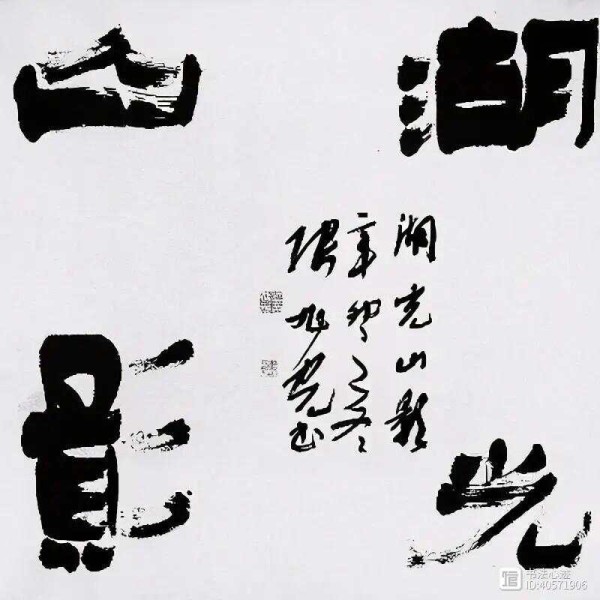 湖光
山影
湖光山影
辛卯之冬
张旭光书
书法心迹
ID:40571906